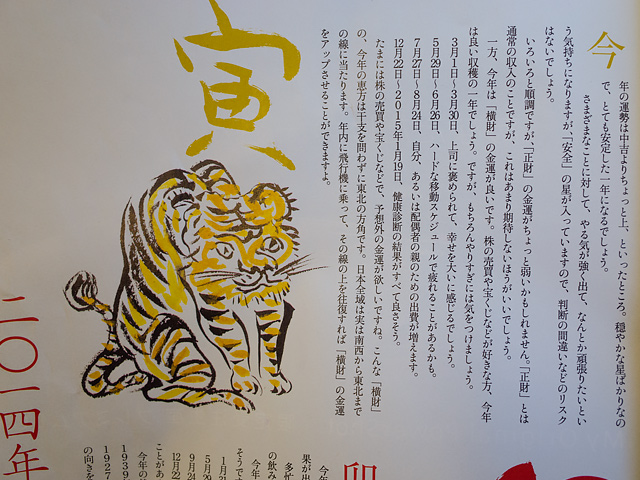 寅
今
年の運勢は中吉よりちょっと上、といったところ。穏やかな星ばかりなの
で、とても安定した一年になるでしょう。
さまざまなことに対して、やる気が強く出て、なんとか頑張りたいとい
う気持ちになりますが、「安全」の星が入っていますので、判断の間違いなどのリスク
はないでしょう。
いろいろと順調ですが、「正財」の金運がちょっと弱いかもしれません。「正財」とは
通常の収入のことですが、これはあまり期待しないほうがいいでしょう。
一方、今年は「横財」の金運が良いです。株の売買や宝くじなどが好きな方、今年
は良い収穫の一年でしょう。ですが、もちろんやりすぎには気をつけましょう。
3月1日〜3月30日、上司に褒められて、幸せを大いに感じるでしょう。
5月29日〜6月26日、ハードな移動スケジュールで疲れることがあるかも。
7月27日〜8月24日、自分、あるいは配偶者の親のための出費が増えます。
12月22日〜2015年1月19日、健康診断の結果がすべて良さそう。
たまには株の売買や宝くじなどで、予想外の金運が欲しいですね。こんな「横財」
の、今年の恵方は干支を問わずに東北の方角です。日本全域は実は南西から東北まで
の線に当たります。年内に飛行機に乗って、その線の上を往復すれば「横財」の金運
をアップさせることができますよ。
二〇一四年
卯
今年
果が出
多忙
の飲み
今年
そうで
1月3
5月29
9月24
12月22
ことがあ
今年の
1939
1927
の向きを